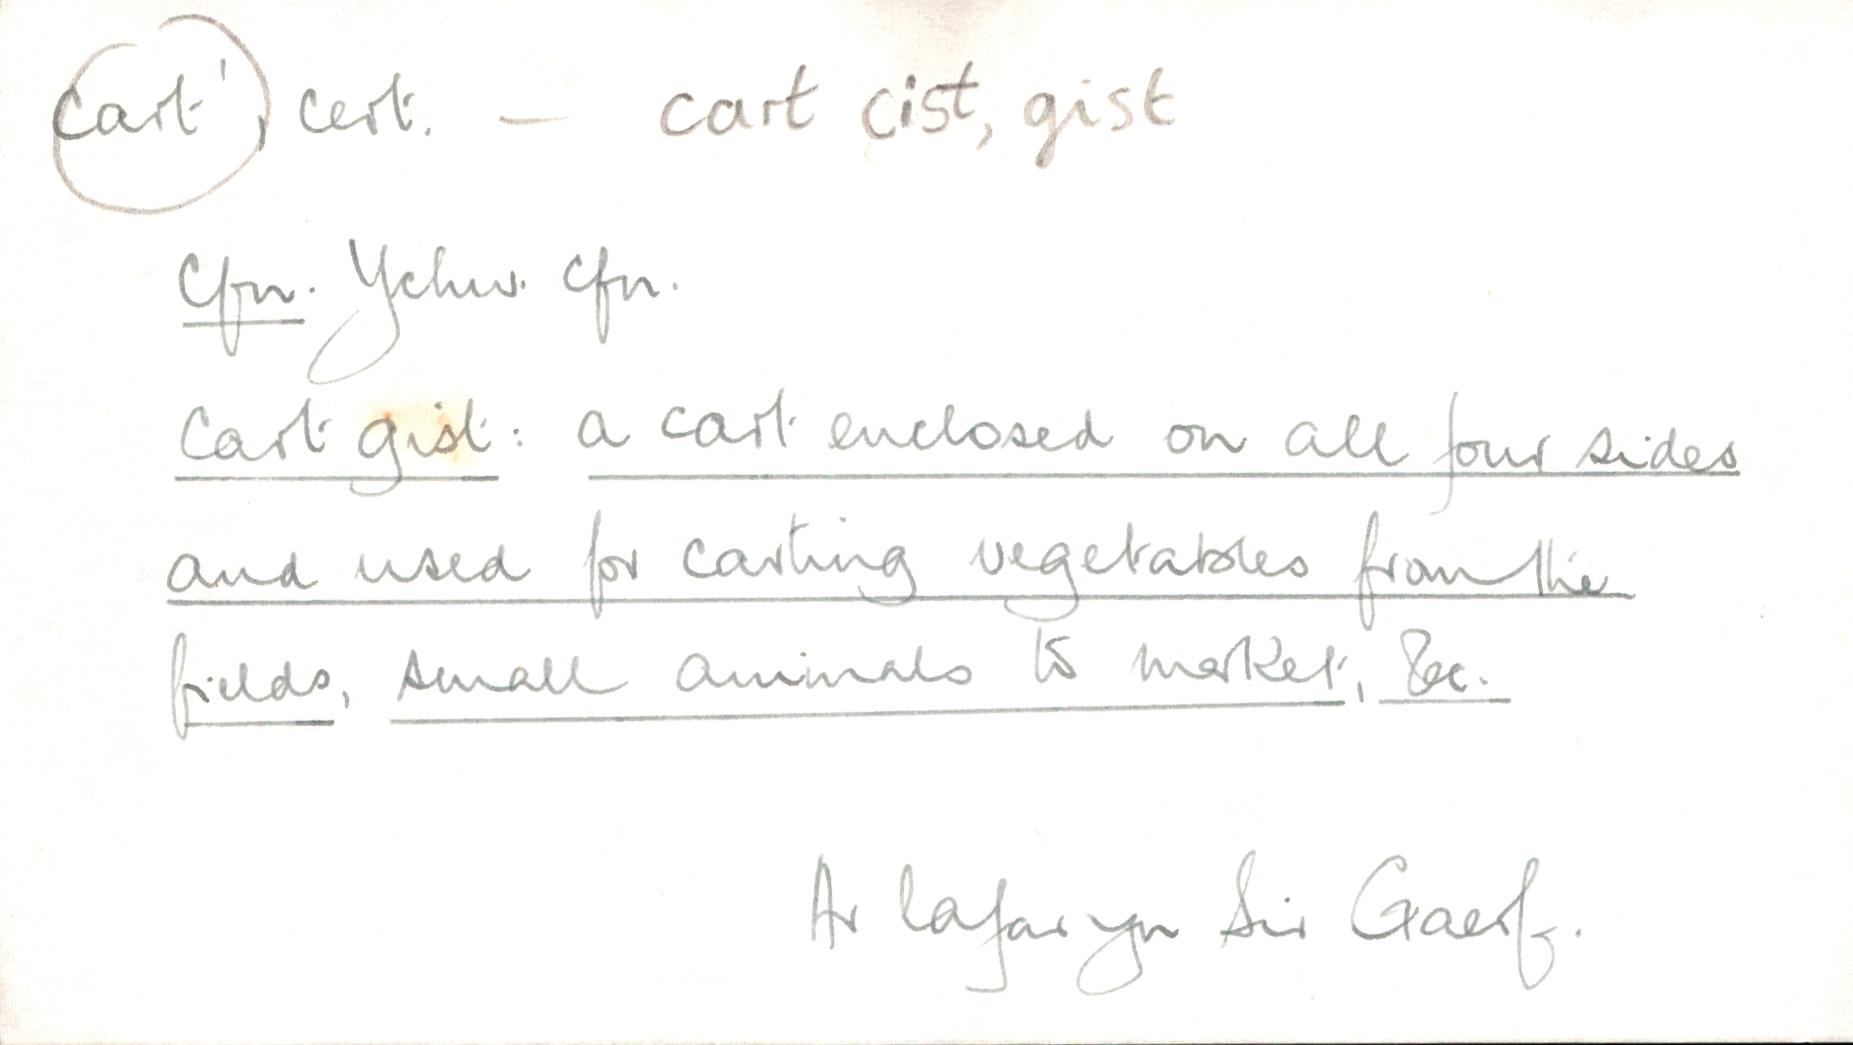 cart', cert. — cart cist, gist
Cfn. Ychw. Cfn.
Cart gist: a cart enclosed on all four sides
and used for carting vegetables from the
fields, small animals to market, &c.
Ar lafar yn Sir Gaerf.